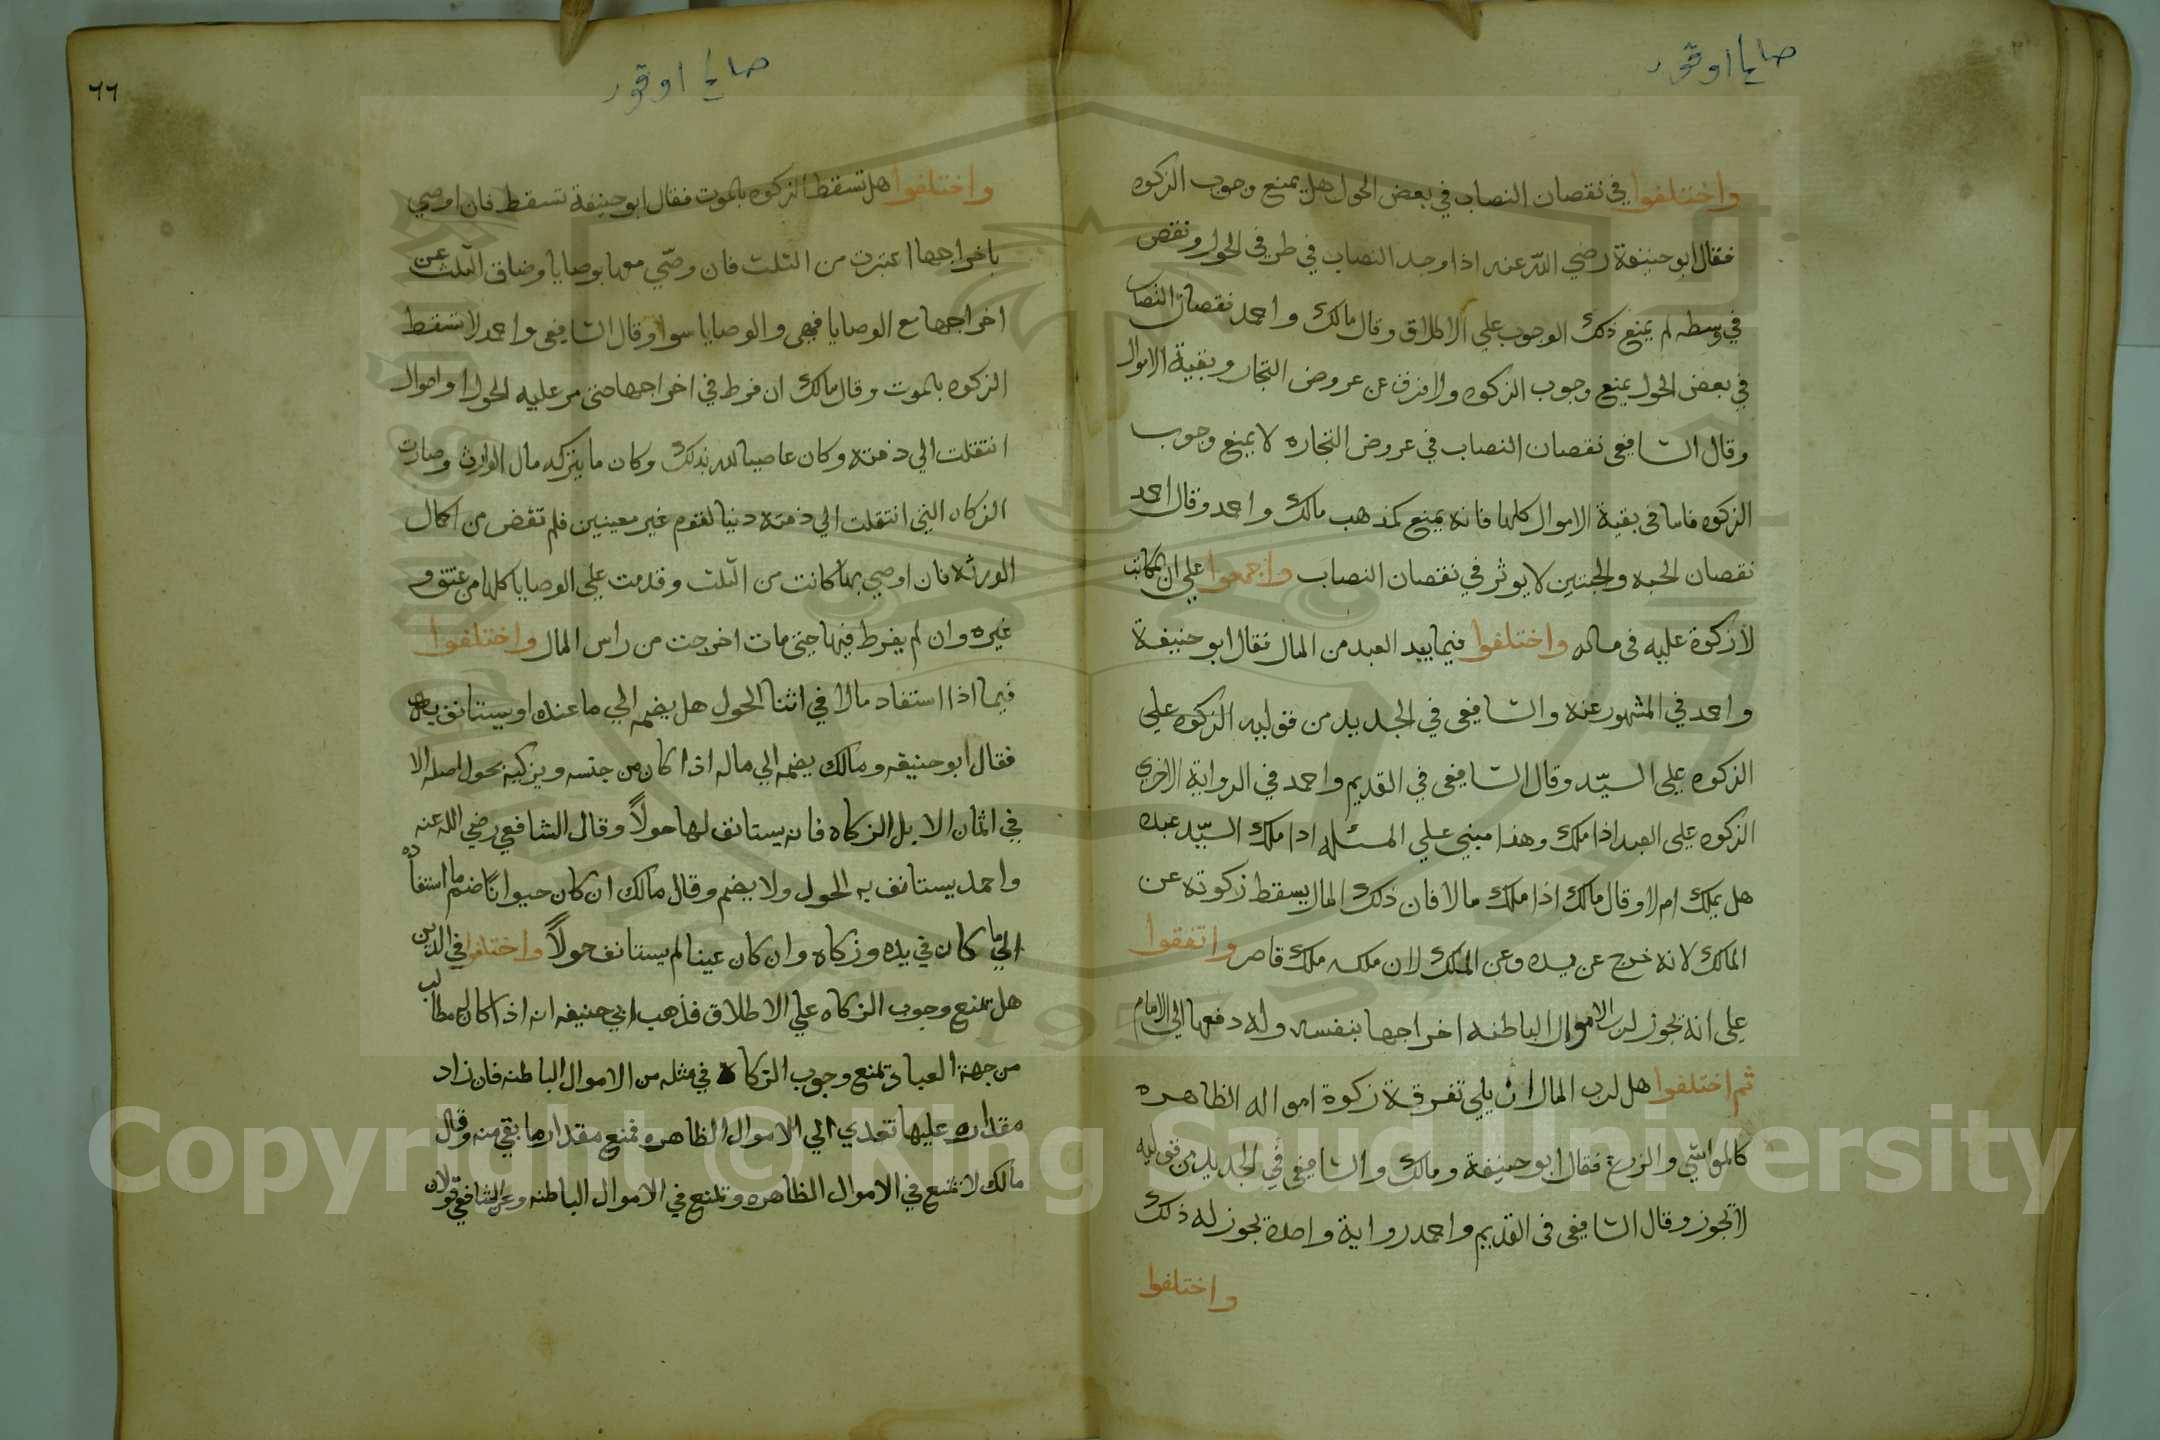 واختلفوا في نقصان النصاب في بعض الحول هل يمنع وجوب الزكوه
فقال ابو حنيفة رضي الله عنه اذا وجد النصاب في طرفي الحول ونقص
في وسطه لم يمنع ذلك الوجوب علي الاطلاق وقال مالك واحمد نقصان النصاب
في بعض الحول يمنع وجوب الزكوه ولا فرق عن عروض التجار وبقية الاموال
وقال الشافعي نقصان النصاب في عروض التجاره لا يمنع وجوب
الزكوه فاما في بقية الاموال كلها فانه يمنع كمذهب مالك واحمد وقال احمد
نقصان الحبه والحبتين لا يوثر في نقصان النصاب واجمعوا علي ان المكاتب
لا زكوة عليه في ماله واختلفوا فيما بيد العبد من المال فقال ابو حنيفة
واحمد في المشهور عنه والشافعي في الجديد من قوليه الزكوه علي
الزكوه علي السيّد وقال الشافعي في القديم واحمد في الرواية الاخري
الزكوه علي العبد اذا ملك وهذا مبني علي المسئله اذا ملك السيّد عبده
هل يملك ام لا وقال مالك اذا ملك مالا فان ذلك المال يسقط زكوته عن
المالك لانه خرج عن يده وعن الملك لان ملكه ملك قاصر واتفقوا
علي انه يجوز لرب الاموال الباطنه اخراجها بنفسه وله دفعها الي الامام
ثم اختلفوا هل لرب المال ان يلي تفرقة زكوة امواله الظاهره
كالمواشي والزرع فقال ابو حنيفة ومالك والشافعي في الجديد من قوليه
لا تجوز وقال الشافعي في القديم واحمد رواية واحدة يجوز له ذلك
واختلفوا
٦٦
واختلفوا هل تسقط الزكوه بالموت فقال ابو حنيفة تسقط فان اوصي
باخراجها اعتبرت من الثلث فان وصّي معها بوصايا وضاق الثلث عن
اخراجها مع الوصايا فهي والوصايا سوا وقال الشافعي واحمد لا تسقط
الزكوه بالموت وقال مالك ان فرط في اخراجها حتى مر عليه الحول او احوال
انتقلت الي ذمته وكان عاصيا لله بذلك وكان ما يتركه مال الوارث وصارت
الزكاه التي انتقلت الي ذمته دينا لقوم غير معينين فلم تقض من اكمال
الورثه فان اوصي بها كانت من الثلث وقدمت علي الوصايا كلها من عتق و
غيره وان لم يفرط فيها حتى مات اخرجت من راس المال واختلفوا
فيما اذا استفاد مالا في اثنا الحول هل يضمه الي ما عنده او يستانف به
فقال ابو حنيفه ومالك يضمه الي ماله اذا كان من جنسه ويزكيه بحول اصله الا
في اثمان الابل الزكاه فانه يستانف لها حولاً وقال الشافعي رضي الله عنه
واحمد يستانف به الحول ولا يضم وقال مالك ان كان حيوانا ضم ما استفاده
الي ما كان في يده وزكاه وان كان عينا لم يستانف حولاً واختلفوا في الدين
هل تمنع وجوب الزكاه علي الاطلاق فذهب ابي حنيفه انه اذا كان له مطالب
من جهة العباد تمنع وجوب الزكاة في مثله من الاموال الباطنه فان زاد
مقداره عليها تعدي الي الاموال الظاهره فمنع مقدار ما بقي منه وقال
مالك لا تمنع في الاموال الظاهره وتمنع في الاموال الباطنه وعن الشافعي قولان